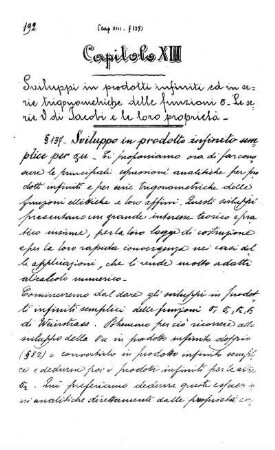 192
[Cap XIII - § 139]
Capitolo XIII
Sviluppi in prodotti infiniti ed in se-
rie trigonometriche delle funzioni σ - Le se-
rie ϑ di Jacobi e le loro proprietà -
§ 139. Sviluppo in prodotto infinito sem-
plice per σu - Ci proponiamo ora di far cono-
scere le principali espressioni analitiche per pro-
dotti infiniti e per serie trigonometriche delle
funzioni ellittiche e loro affini. Questi sviluppi
presentano un grande interesse teorico e pra-
tico insieme, per la loro legge di costruzione
e per la loro rapida convergenza nei casi del-
le applicazioni, che li rende molto adatti
al calcolo numerico.
Cominceremo dal dare gli sviluppi in prodot-
ti infiniti semplici delle funzioni σ, σ₁, σ₂, σ₃
di Weierstrass. Potremmo per ciò ricorrere allo
sviluppo della σu in prodotto infinito doppio
(§ 82) e convertirlo in prodotto infinito sempli-
ce e dedurne poi i prodotti infiniti per le
Qui preferiamo dedurre queste espressio-
ni analitiche direttamente dalle proprietà ca-